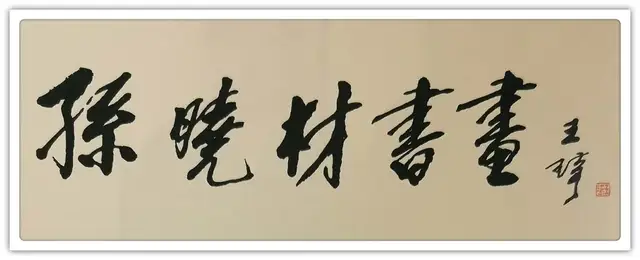 孫曉材書畫
王琦